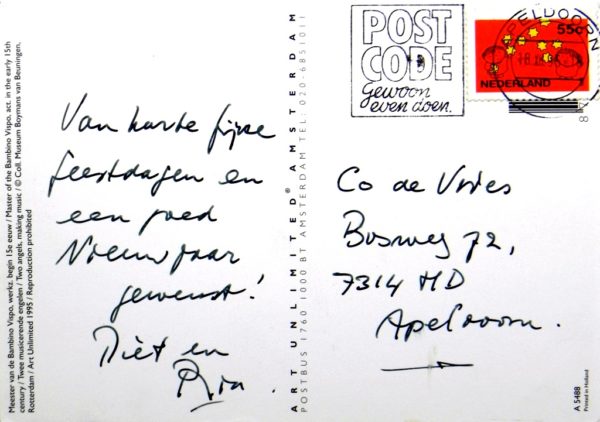 Meester van de Bambino Vispo, werkz. begin 15e eeuw / Master of the Bambino Vispo, act. in the early 15th
century / Twee musicerende engelen / Two angels, making music / © Coll. Museum Boymans van Beuningen,
Rotterdam / Art Unlimited 1995 / Reproduction prohibited
Van harte fijne
feestdagen en
een goed
Nieuwjaar
gewenst!
Diet en
Ria.
ART UNLIMITED® AMSTERDAM
POSTBUS 1760 1000 BT AMSTERDAM TEL: 020-6851011
POST
CODE
Gewoon
even doen.
APELDOORN
55c
NEDERLAND
Co de Vries
Bosweg 72,
7314 HD
Apeldoorn.
A 5488
Printed in Holland